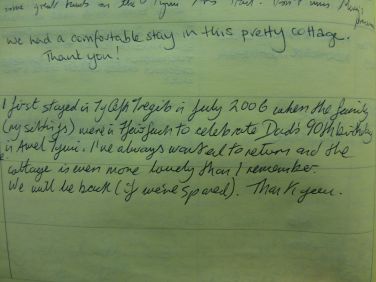 some great beach on the
we had a comfortable stay in this pretty cottage.
Thank you!
I first stayed in Ty Capt Tregib in July 2006 when the family
(my siblings) were in to celebrate Dad's 90th birthday
in Awel Tymi. I've always wanted to return and the
cottage is even more lovely than I remember.
We will be back (if we're spared). Thank you.